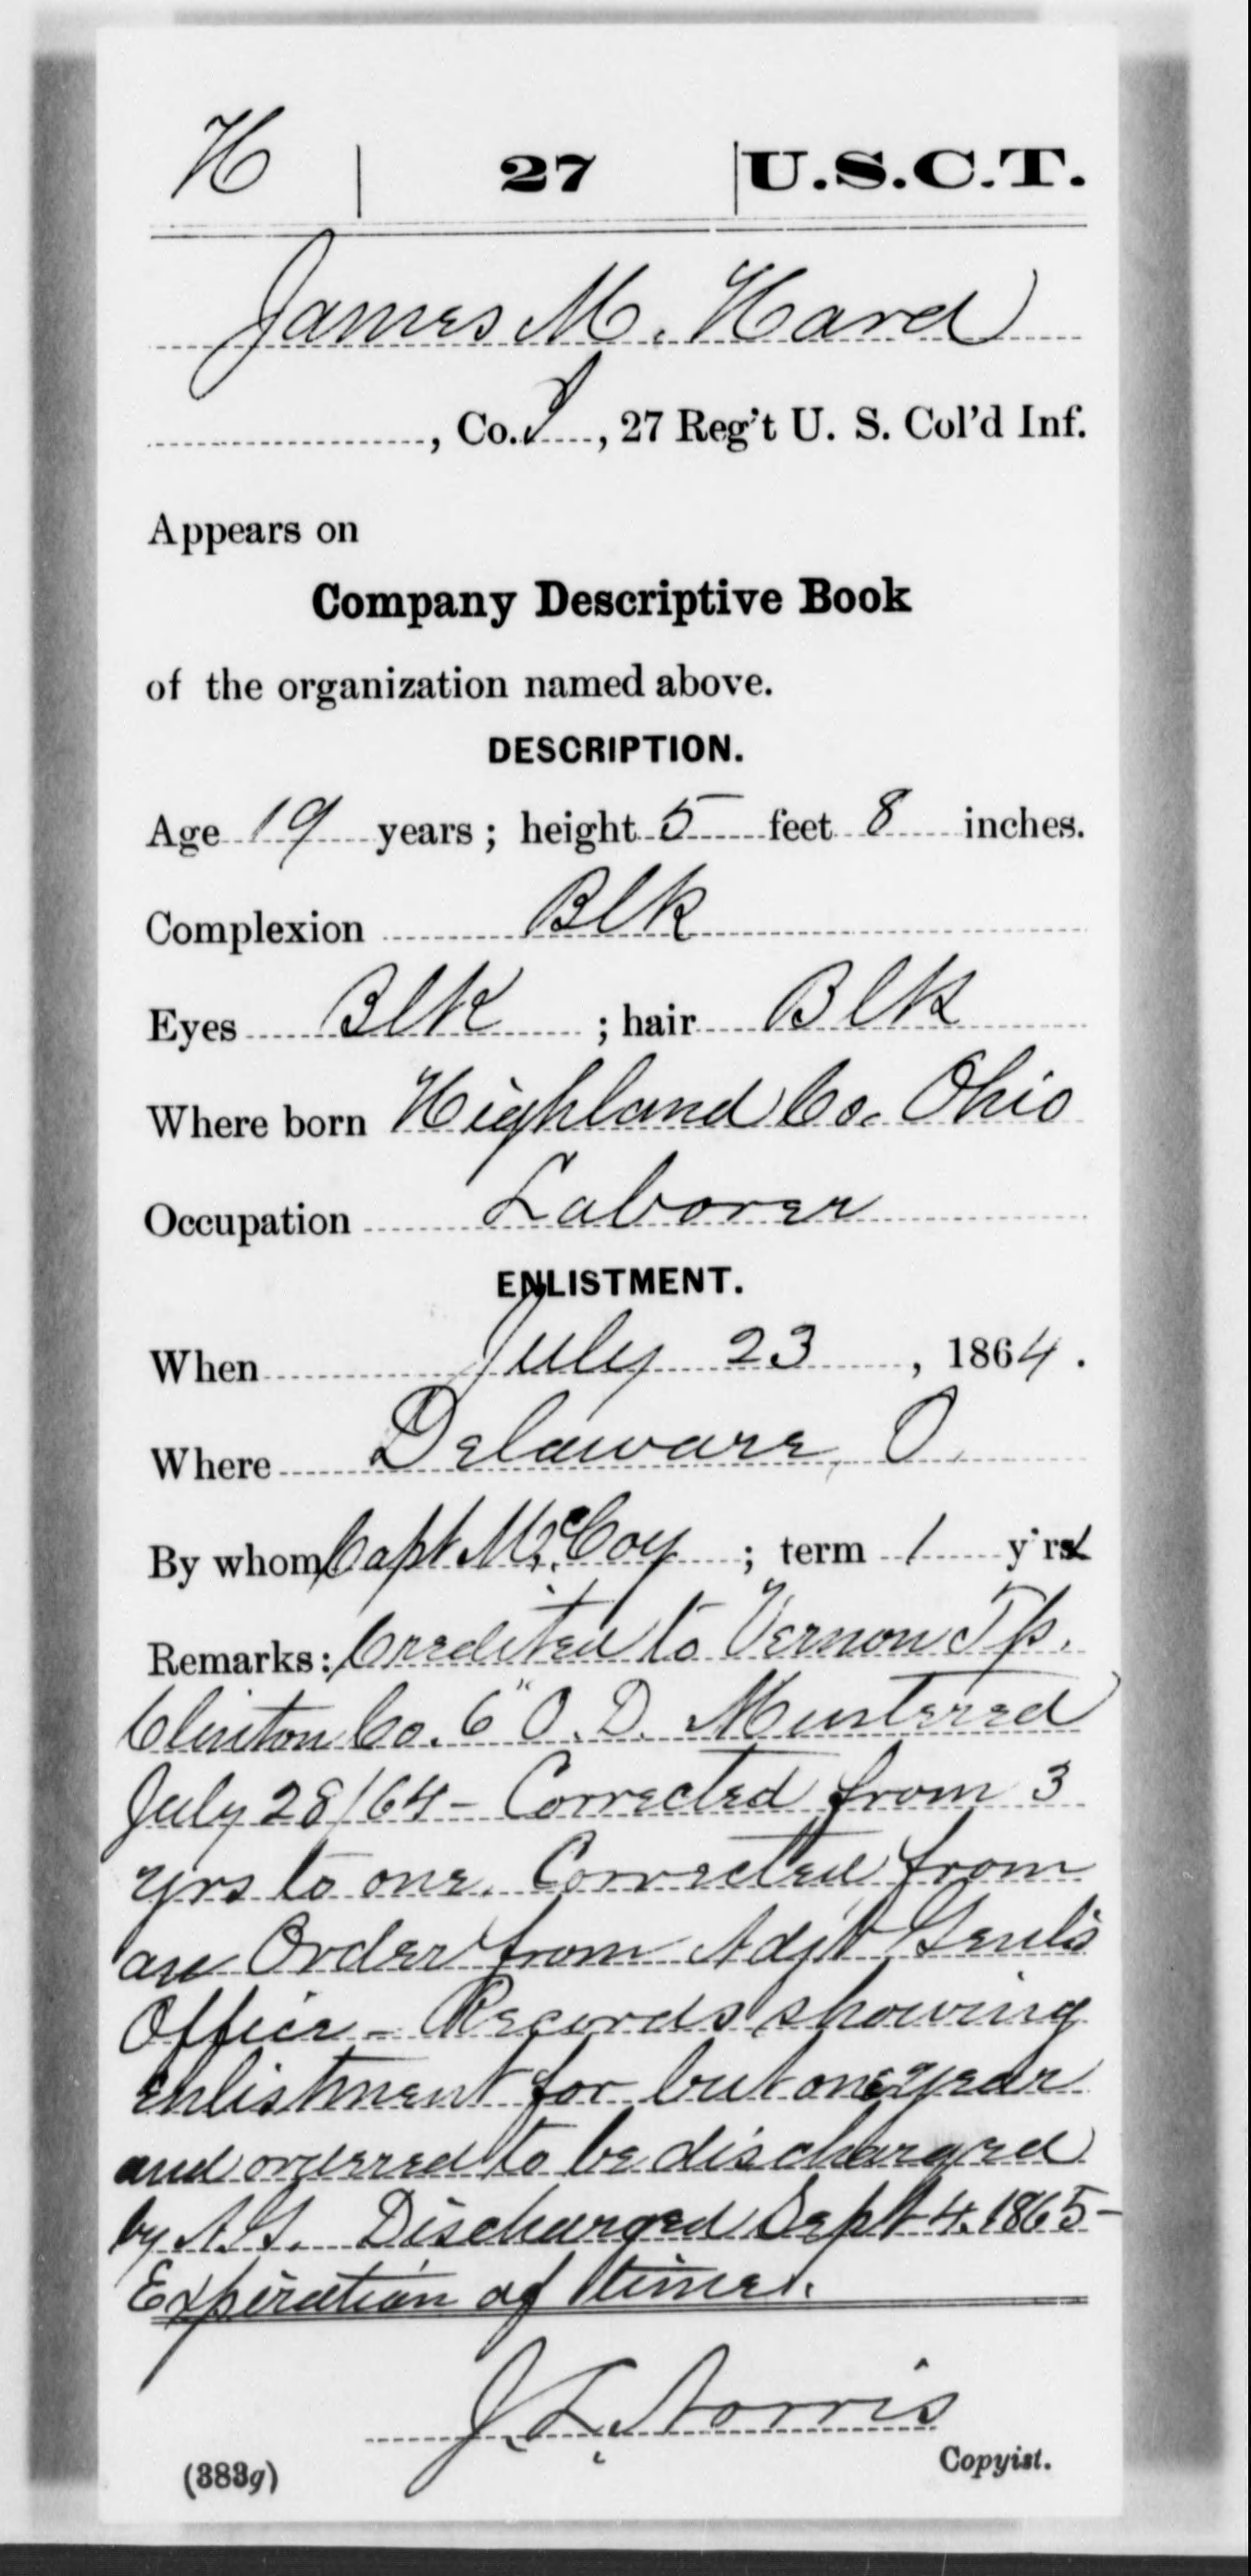 H | 27 | U.S.C.T.
James M. Hard
, Co. I, 27 Reg't U. S. Col'd Inf.
Appears on
Company Descriptive Book
of the organization named above.
DESCRIPTION.
Age 19 years; height 5 feet 8 inches.
Complexion Blk
Eyes Blk ; hair Blk
Where born Highland Co. Ohio
Occupation Laborer
ENLISTMENT.
When July 23, 1864.
Where Delaware, O.
By whom Capt McCoy ; term 1 y'rs
Remarks: Credited to Vernon Tp.
Clinton Co. 6" O. D. Mustered
July 28/64 - Corrected from 3
yrs to one. Corrected from
an Order from Adjt Genl's
Office - Records showing
enlistment for but one year
and orderred to be discharged
by A.G. Discharged Sept 4. 1865 -
Expiration of time.
J. L. Norris
Copyist.
(383g)